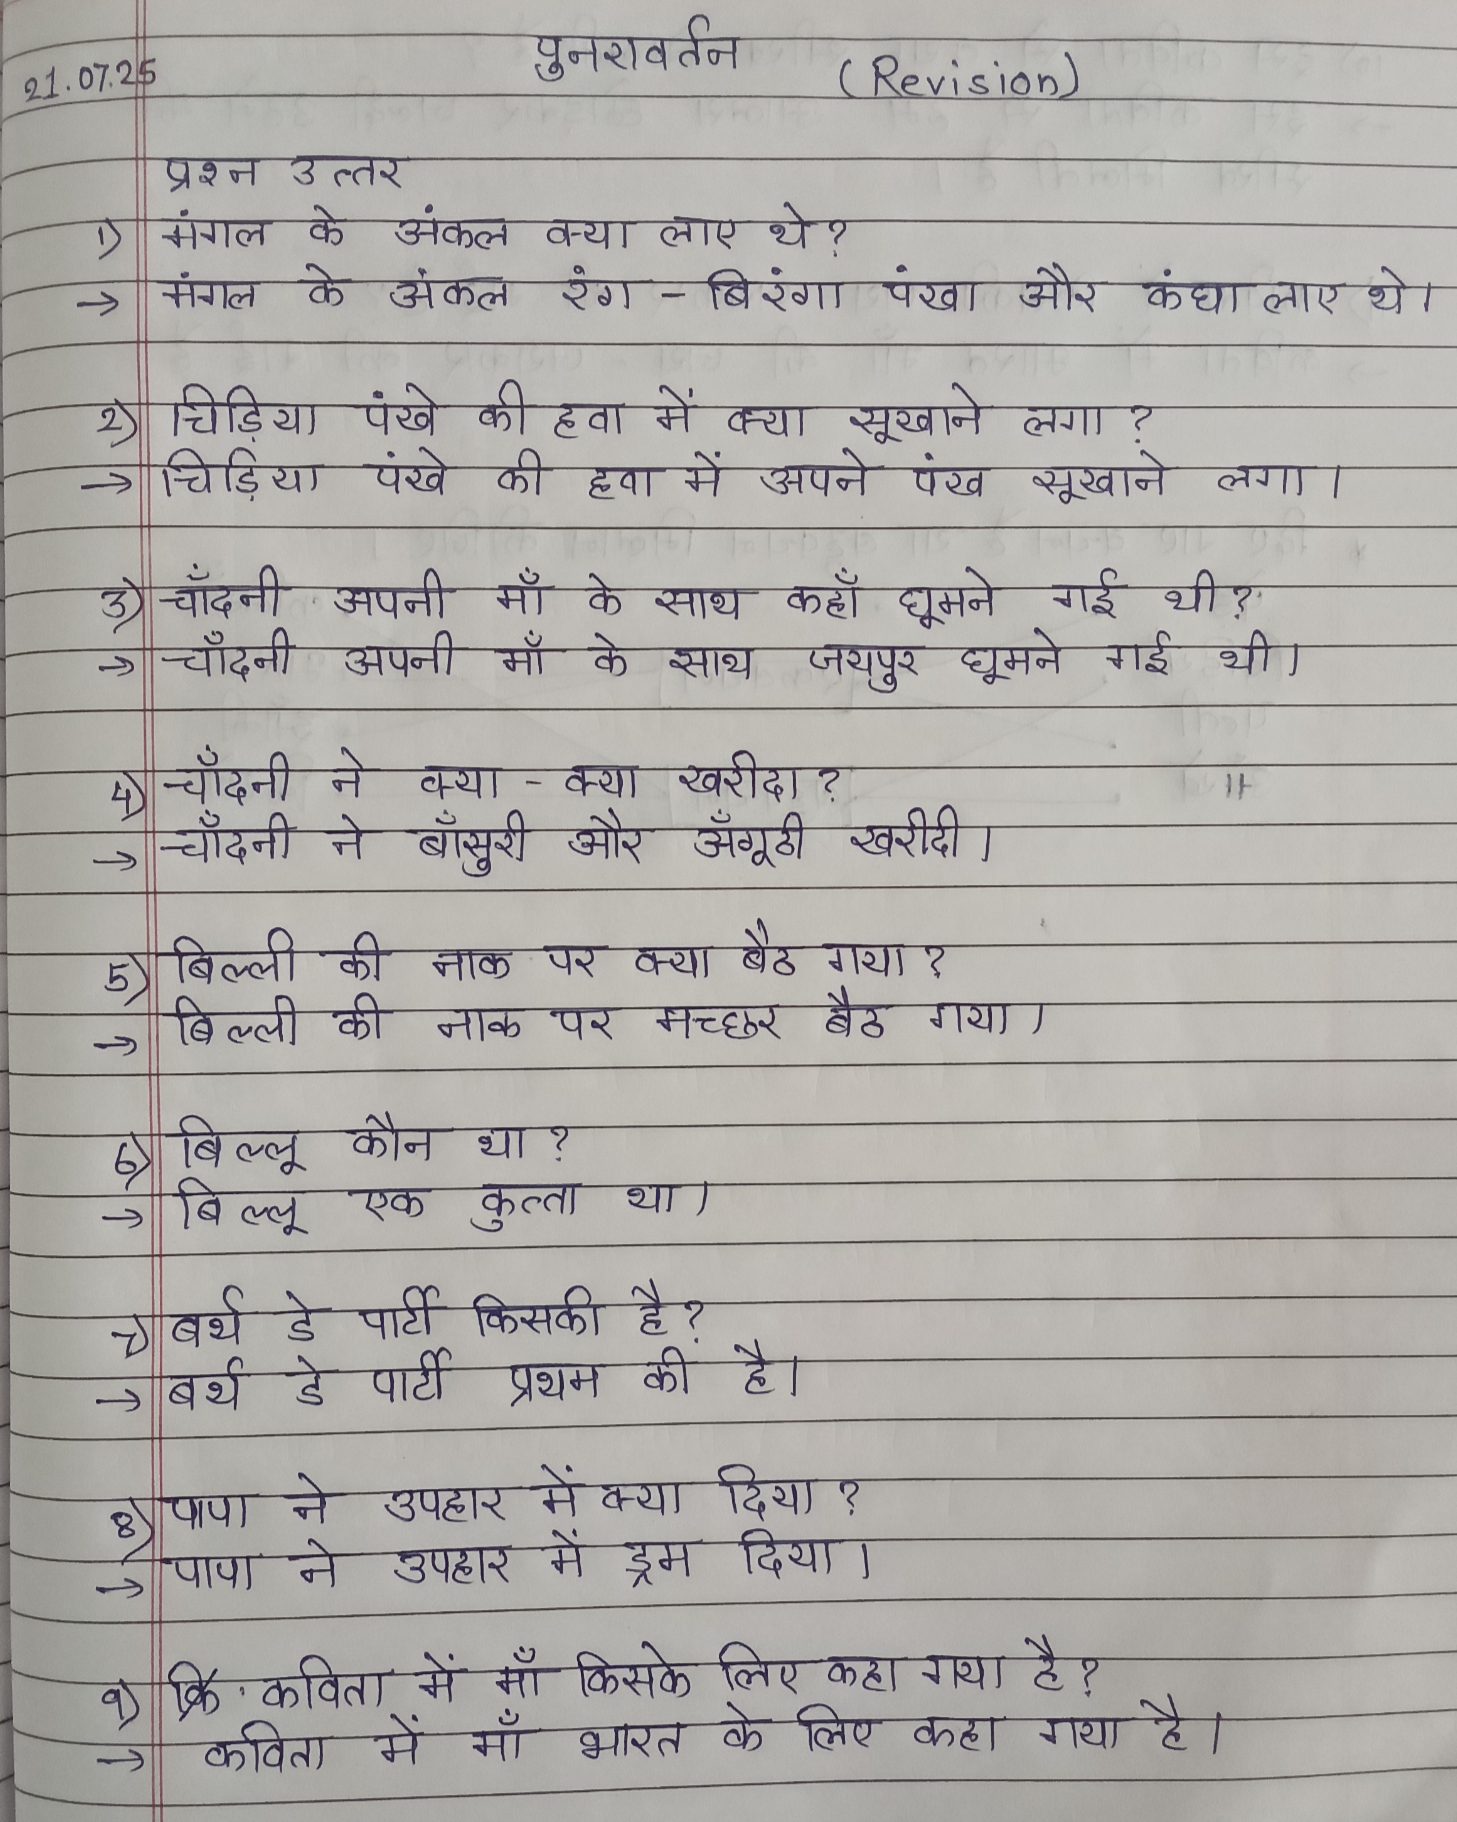 पुनरावर्तन (Revision)
21.07.25
प्रश्न उत्तर
1) मंगल के अंकल क्या लाए थे?
→ मंगल के अंकल रंग - बिरंगा पंखा और कंघा लाए थे।
2) चिड़िया पंखे की हवा में क्या सूखाने लगा?
→ चिड़िया पंखे की हवा में अपने पंख सूखाने लगा।
3) चाँदनी अपनी माँ के साथ कहाँ घूमने गई थी?
→ चाँदनी अपनी माँ के साथ जयपुर घूमने गई थी।
4) चाँदनी ने क्या - क्या खरीदा?
→ चाँदनी ने बाँसुरी और अँगूठी खरीदी।
5) बिल्ली की नाक पर क्या बैठ गया?
→ बिल्ली की नाक पर मच्छर बैठ गया।
6) बिल्लू कौन था?
→ बिल्लू एक कुत्ता था।
7) बर्थ डे पार्टी किसकी है?
→ बर्थ डे पार्टी प्रथम की है।
8) पापा ने उपहार में क्या दिया?
→ पापा ने उपहार में ड्रम दिया।
9) कविता में माँ किसके लिए कहा गया है?
→ कविता में माँ भारत के लिए कहा गया है।